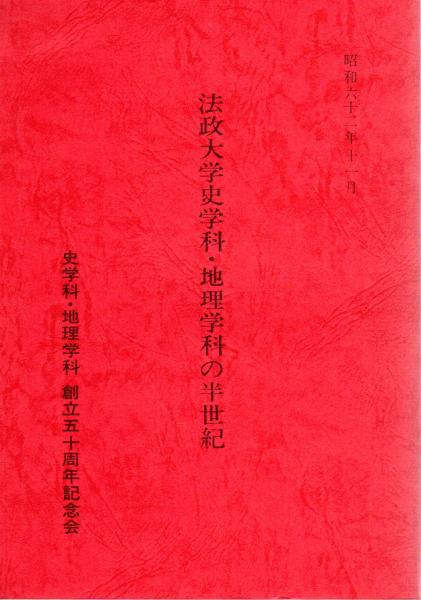 昭和六十二年十一月
法政大学史学科・地理学科の半世紀
史学科・地理学科 創立五十周年記念会